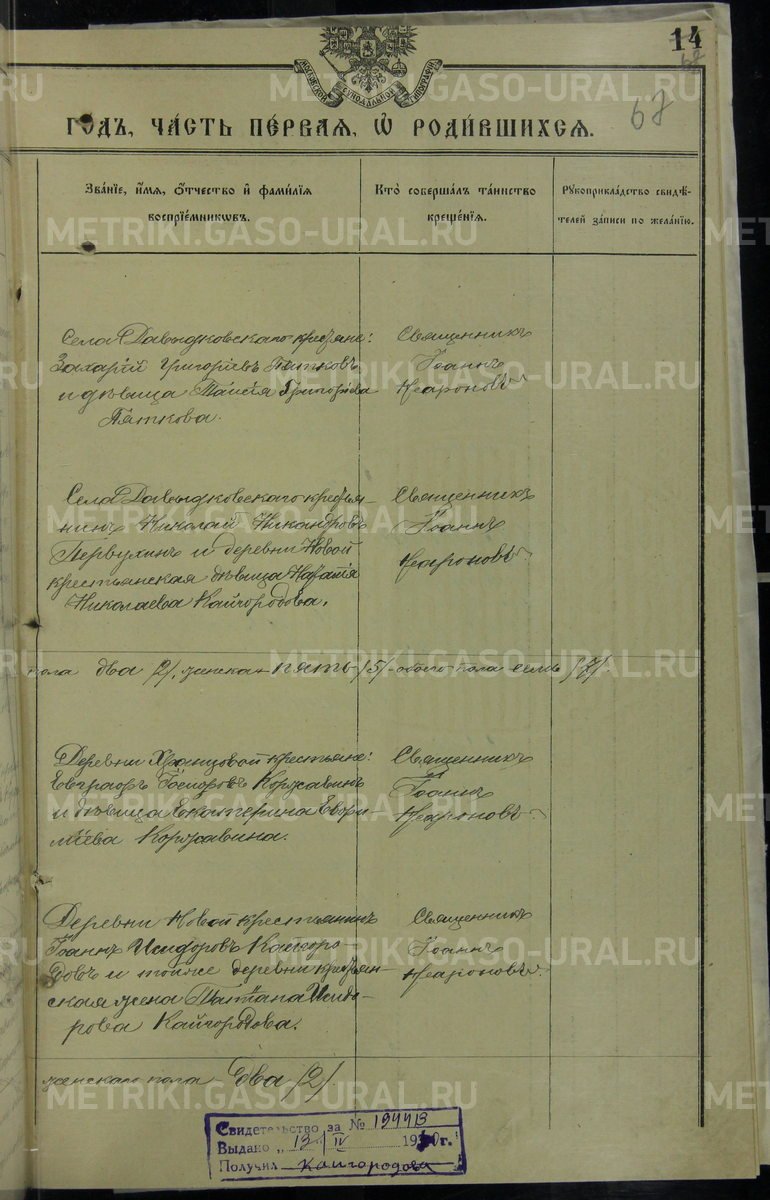 14
67
МОСКОВСКОЙ СѴНОДАЛЬНОЙ ТИПОГРАФІИ
ГОДЪ, ЧАСТЬ ПЕРВАЯ, Ѡ РОДИВШИХСЯ.
Званіе, имя, отчество и фамилія
воспріемникѡвъ.
Кто совершалъ таинство
крещенія.
Рукоприкладство свидѣ-
телей записи по желанію.
Села Давыдковскаго крестьяне:
Захарій Григоріевъ Пятковъ
и дѣвица Таисія Григоріева
Пяткова.
Священникъ
Іоаннъ
Неароновъ
Села Давыдковскаго крестья-
нинъ Николай Никандровъ
Первухинъ и деревни Новой
крестьянская дѣвица
Николаева Кайгородова.
Священникъ
Іоаннъ
Неароновъ
пола два /2/, женска пять /5/ обоего пола семь /7/
Деревни крестьяне:
Евграфъ Коржавинъ
и дѣвица Екатерина Еври-
Коржавина.
Священникъ
Іоаннъ
Неароновъ
Деревни Новой крестьянинъ
Іоаннъ Исидоровъ Кайгоро-
довъ и тойже деревни крестьян-
ская жена Татіана Исидо-
рова Кайгородова.
Священникъ
Іоаннъ
Неароновъ
женскаго пола два /2/.
Свидетельство за № 194413
Выдано „13/IV 19 0г.
Получил Кайгородова
METRIKI.GASO-URAL.RU